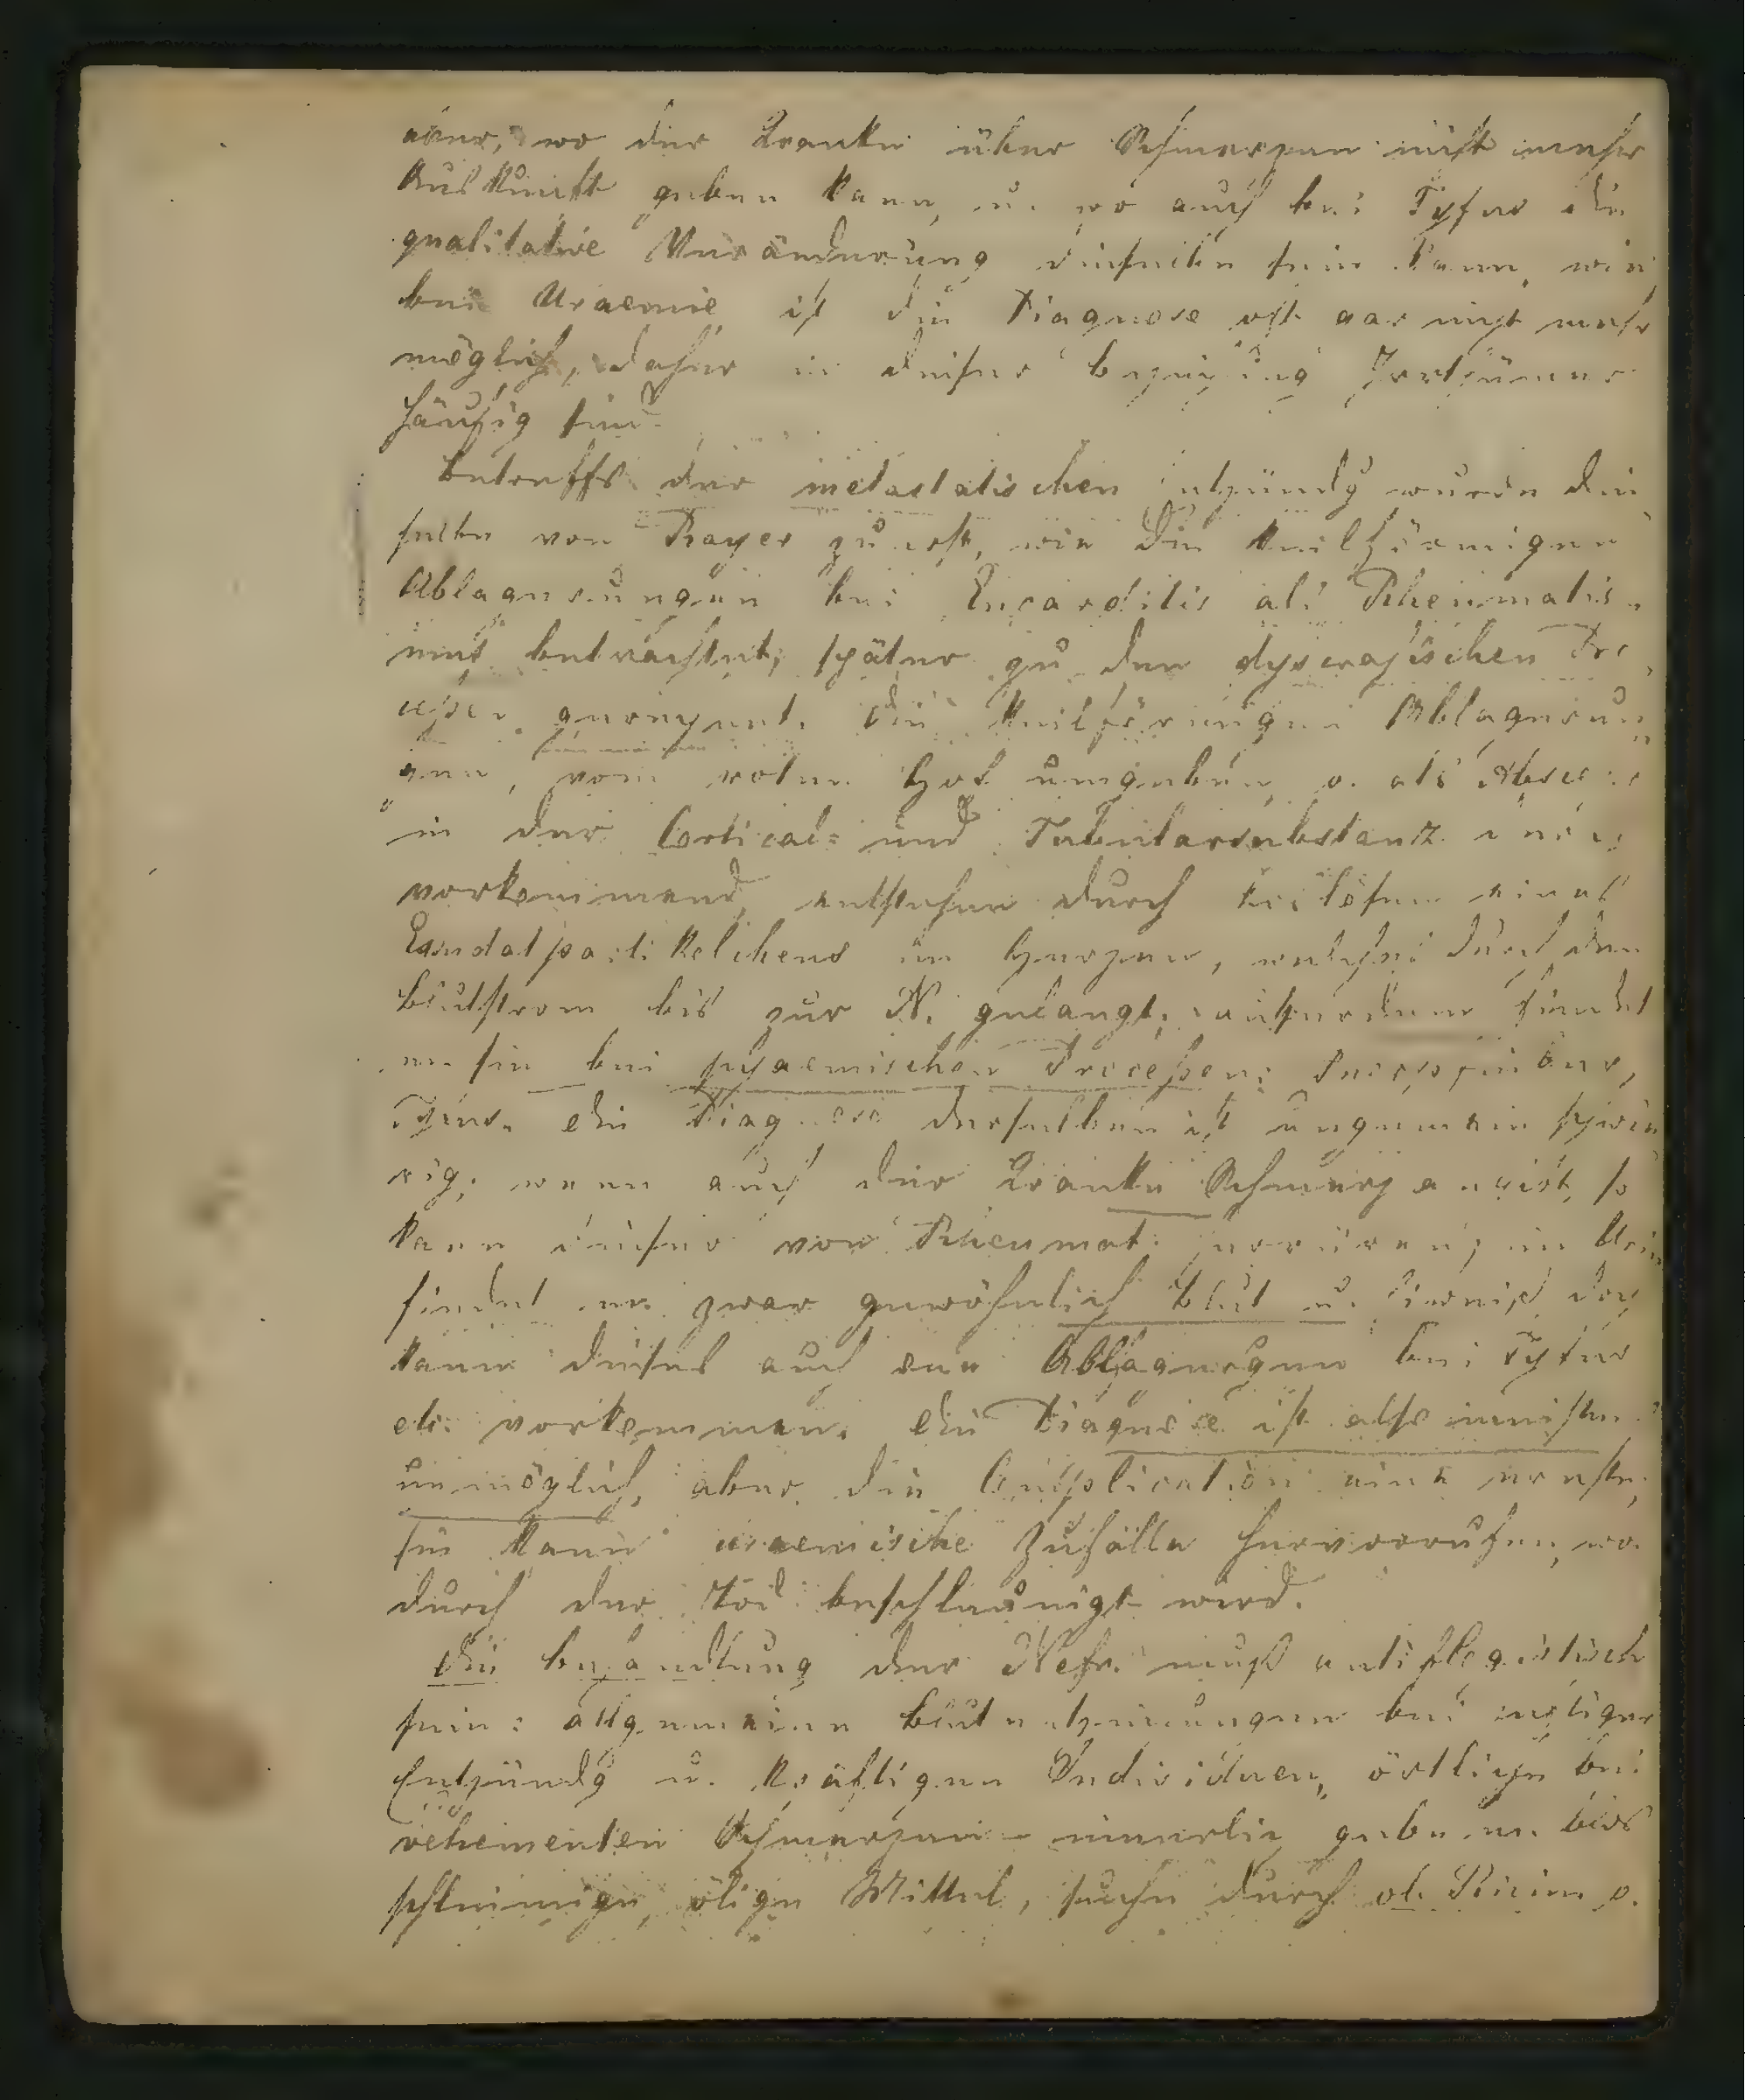 aber, wo der Kranke über Schmerzen nicht mehr
Auskunft geben kann, u. wo auch bei Tyfus die
qualitative Veränderung dieselbe sein kann, wie
bei Uraemie ist die Diagnose oft gar nicht mehr
möglich, daher in dieser Beziehung Irrthümer
häufig sind.
Betreffs der metastatischen Entzündg wurde die
selbe von Rayer zuerst, wie die keilförmigen
Ablagerungen bei Encarditis als Rheumatis-
mus betrachtet, später zu den dyscrasischen Pro
cessen gerechnet. Die keilförmigen Ablagerun
gen, vom roten Hof umgeben, o. als Absces
in der Cortical- und Tubularsubstanz
vorkommend, entstehen durch Loslösen eines
Exsudatpartikelchens im Herzen, welches durch den
Blutstrom bis zur N. gelangt; außerdem findet
m sie bei pyaemischen Processen: Puerperfieber,
Tyfus. Die Diagnose derselben ist ungemein schwie
rig; wenn auch der Kranke Schmerz angibt, so
kann dieser von Rheumat. herrüren; im Urin
findet m. zwar gewöhnlich Blut u. Eiweiß doch
kann dieses auch von Ablagergen bei Tyfus
etc. vorkommen. Die Diagnose ist also meistens
unmöglich, aber die Complication eine ernste;
sie kann uraemische Zufälle hervorrufen, wo
durch der Tod beschleunigt wird.
Die Behandlung der Nefr. muß antiflogistisch
sein: allgemeine Blutentziehungen bei heftiger
Entzündg u. kräftigen Individuen, örtliche bei
vehementen Schmerzen – innerlich gebe m. bios
schleimige, ölige Mittel, suche durch ol. Ricini o.